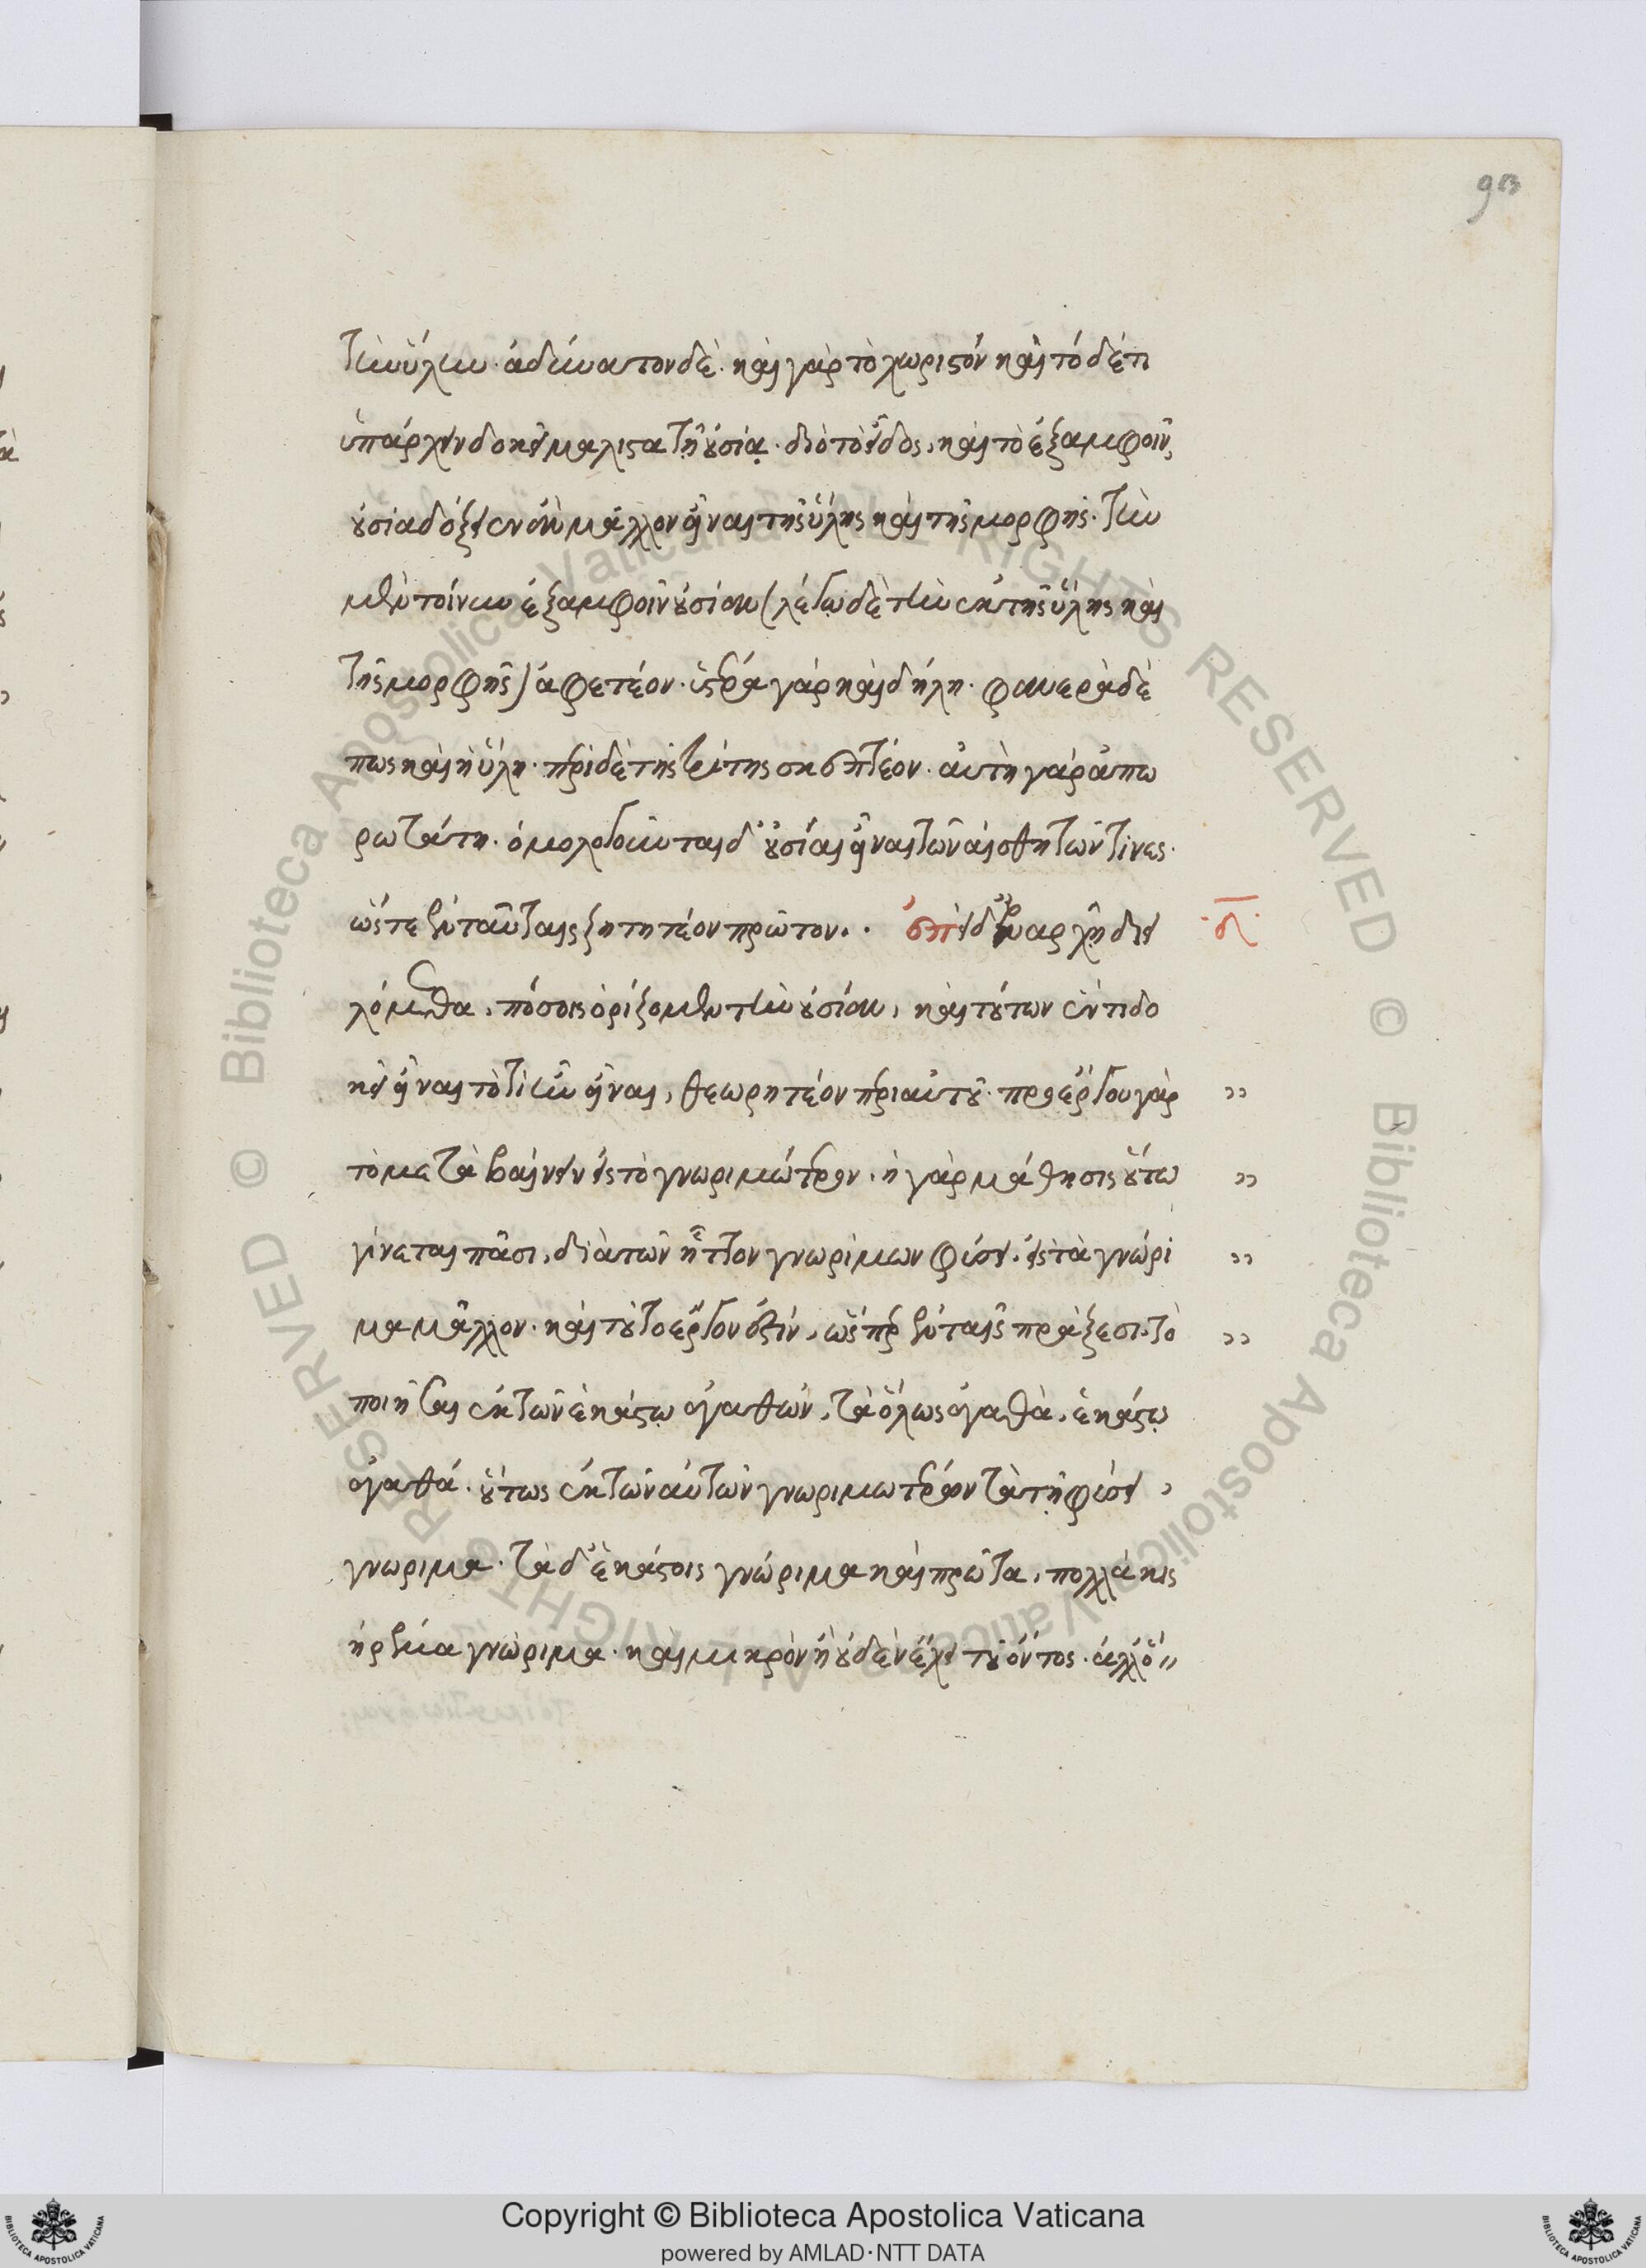 93
τὴν ὕλην· ἀδύνατον δὲ· καὶ γὰρ τὸ χωριστὸν καὶ τὸ τόδέ τι
ὑπάρχειν δοκεῖ μάλιστα τῇ οὐσίᾳ· διὸ τὸ εἶδος, καὶ τὸ ἐξ ἀμφοῖν,
οὐσία δόξειεν ἂν μᾶλλον εἶναι τῆς ὕλης καὶ τῆς μορφῆς· τὴν
μὲν τοίνυν ἐξ ἀμφοῖν οὐσίαν (λέγω δὲ τὴν ἐκ τῆς ὕλης καὶ
τῆς μορφῆς) ἀφετέον· ὑστέρα γὰρ καὶ δήλη· φανερὰ δὲ
πως καὶ ἡ ὕλη· περὶ δὲ τῆς τρίτης σκεπτέον· αὐτὴ γὰρ ἀπω
ρωτάτη· ὁμολογοῦνται δ' οὐσίαι εἶναι τῶν αἰσθητῶν τινες·
ὥστε ἐν ταύταις ζητητέον πρῶτον·· ἐπεὶ δ' ἐν ἀρχῇ διει
·δ·
λόμεθα, πόσοις ὁρίζομεν τὴν οὐσίαν, καὶ τούτων ἕν τι δο
κεῖ εἶναι τὸ τί ἦν εἶναι, θεωρητέον περὶ αὐτοῦ· πρὸ ἔργου γὰρ ,,
τὸ μεταβαίνειν εἰς τὸ γνωριμώτερον· ἡ γὰρ μάθησις οὕτω ,,
γίνεται πᾶσι, διὰ τῶν ἧττον γνωρίμων φύσει, εἰς τὰ γνώρι ,,
μα μᾶλλον· καὶ τοῦτο ἔργον ἐστίν, ὥσπερ ἐν ταῖς πράξεσι, τὸ ,,
ποιῆσαι ἐκ τῶν ἑκάστῳ ἀγαθῶν, τὰ ὅλως ἀγαθὰ, ἑκάστῳ
ἀγαθά· οὕτως ἐκ τῶν αὐτῶν γνωριμωτέρων τὰ τῇ φύσει,
γνωριμα· τὰ δ' ἑκάστοις γνώριμα καὶ πρῶτα, πολλάκις
ἠρέμα γνώριμα· καὶ μικρὸν ἢ οὐδὲν ἔχει τοῦ ὄντος· ἀλλ' ὅ,,